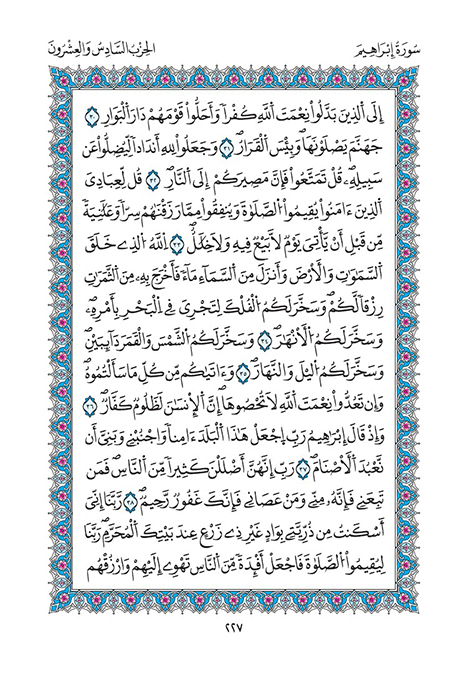 سُورَةُ إِبْرَاهِيمَ
الحِزْبُ السَّادِسُ وَالعِشْرُونَ
إِلَى اَلذِينَ بَدَّلُواْ نِعْمَتَ اَللَّهِ كُفْراً وَأَحَلُّواْ قَوْمَهُمْ دَارَ اَلْبَوَارِ ٣٠
جَهَنَّمَ يَصْلَوْنَهَا وَبِيسَ اَلْقَرَارُ ٣١ وَجَعَلُواْ لِلهِ أَندَاداً لِّيُضِلُّواْ عَن
سَبِيلِهِۦ قُلْ تَمَتَّعُواْ فَإِنَّ مَصِيرَكُمْ إِلَى اَلنّ۪ارِ ٣٢ قُل لِّعِبَادِيَ
اَلذِينَ ءَامَنُواْ يُقِيمُواْ اُلصَّلَوٰةَ وَيُنفِقُواْ مِمَّا رَزَقْنَٰهُمْ سِرّاً وَعَلَٰنِيَةً
مِّن قَبْلِ أَنْ يَّأْتِيَ يَوْمٌ لاَّ بَيْعٌ فِيهِ وَلاَ خِلَٰلٌ ٣٣ اِللَّهُ اُلذِے خَلَقَ
اَلسَّمَٰوَٰتِ وَالْأَرْضَ وَأَنزَلَ مِنَ اَلسَّمَآءِ مَآءً فَأَخْرَجَ بِهِۦ مِنَ اَلثَّمَرَٰتِ
رِزْقاً لَّكُمْ وَسَخَّرَ لَكُمُ اُلْفُلْكَ لِتَجْرِيَ فِے اِلْبَحْرِ بِأَمْرِهِۦ
وَسَخَّرَ لَكُمُ اُلْأَنْهَٰرَ ٣٤ وَسَخَّرَ لَكُمُ اُلشَّمْسَ وَالْقَمَرَ دَآئِبَيْنِ
وَسَخَّرَ لَكُمُ اُليْلَ وَالنَّهَارَ ٣٥ وَءَات۪يٰكُم مِّن كُلِّ مَا سَأَلْتُمُوهُ
وَإِن تَعُدُّواْ نِعْمَتَ اَللَّهِ لاَ تُحْصُوهَا إِنَّ اَلْإِنسَٰنَ لَظَلُومٌ كَفَّارٌ ٣٦
وَإِذْ قَالَ إِبْرَٰهِيمُ رَبِّ اِجْعَلْ هَٰذَا اَلْبَلَدَ ءَامِناً وَاجْنُبْنِے وَبَنِيَّ أَن
نَّعْبُدَ اَلْأَصْنَامَ ٣٧ رَبِّ إِنَّهُنَّ أَضْلَلْنَ كَثِيراً مِّنَ اَلنَّاسِ فَمَن
تَبِعَنِے فَإِنَّهُۥ مِنِّے وَمَنْ عَصَانِے فَإِنَّكَ غَفُورٌ رَّحِيمٌ ٣٨ رَّبَّنَآ إِنِّيَ
أَسْكَنتُ مِن ذُرِّيَّتِے بِوَادٍ غَيْرِ ذِے زَرْعٍ عِندَ بَيْتِكَ اَلْمُحَرَّمِ رَبَّنَا
لِيُقِيمُواْ اُلصَّلَوٰةَ فَاجْعَلْ أَفْـِٕدَةً مِّنَ اَلنَّاسِ تَهْوِےٓ إِلَيْهِمْ وَارْزُقْهُم
٢٢٧